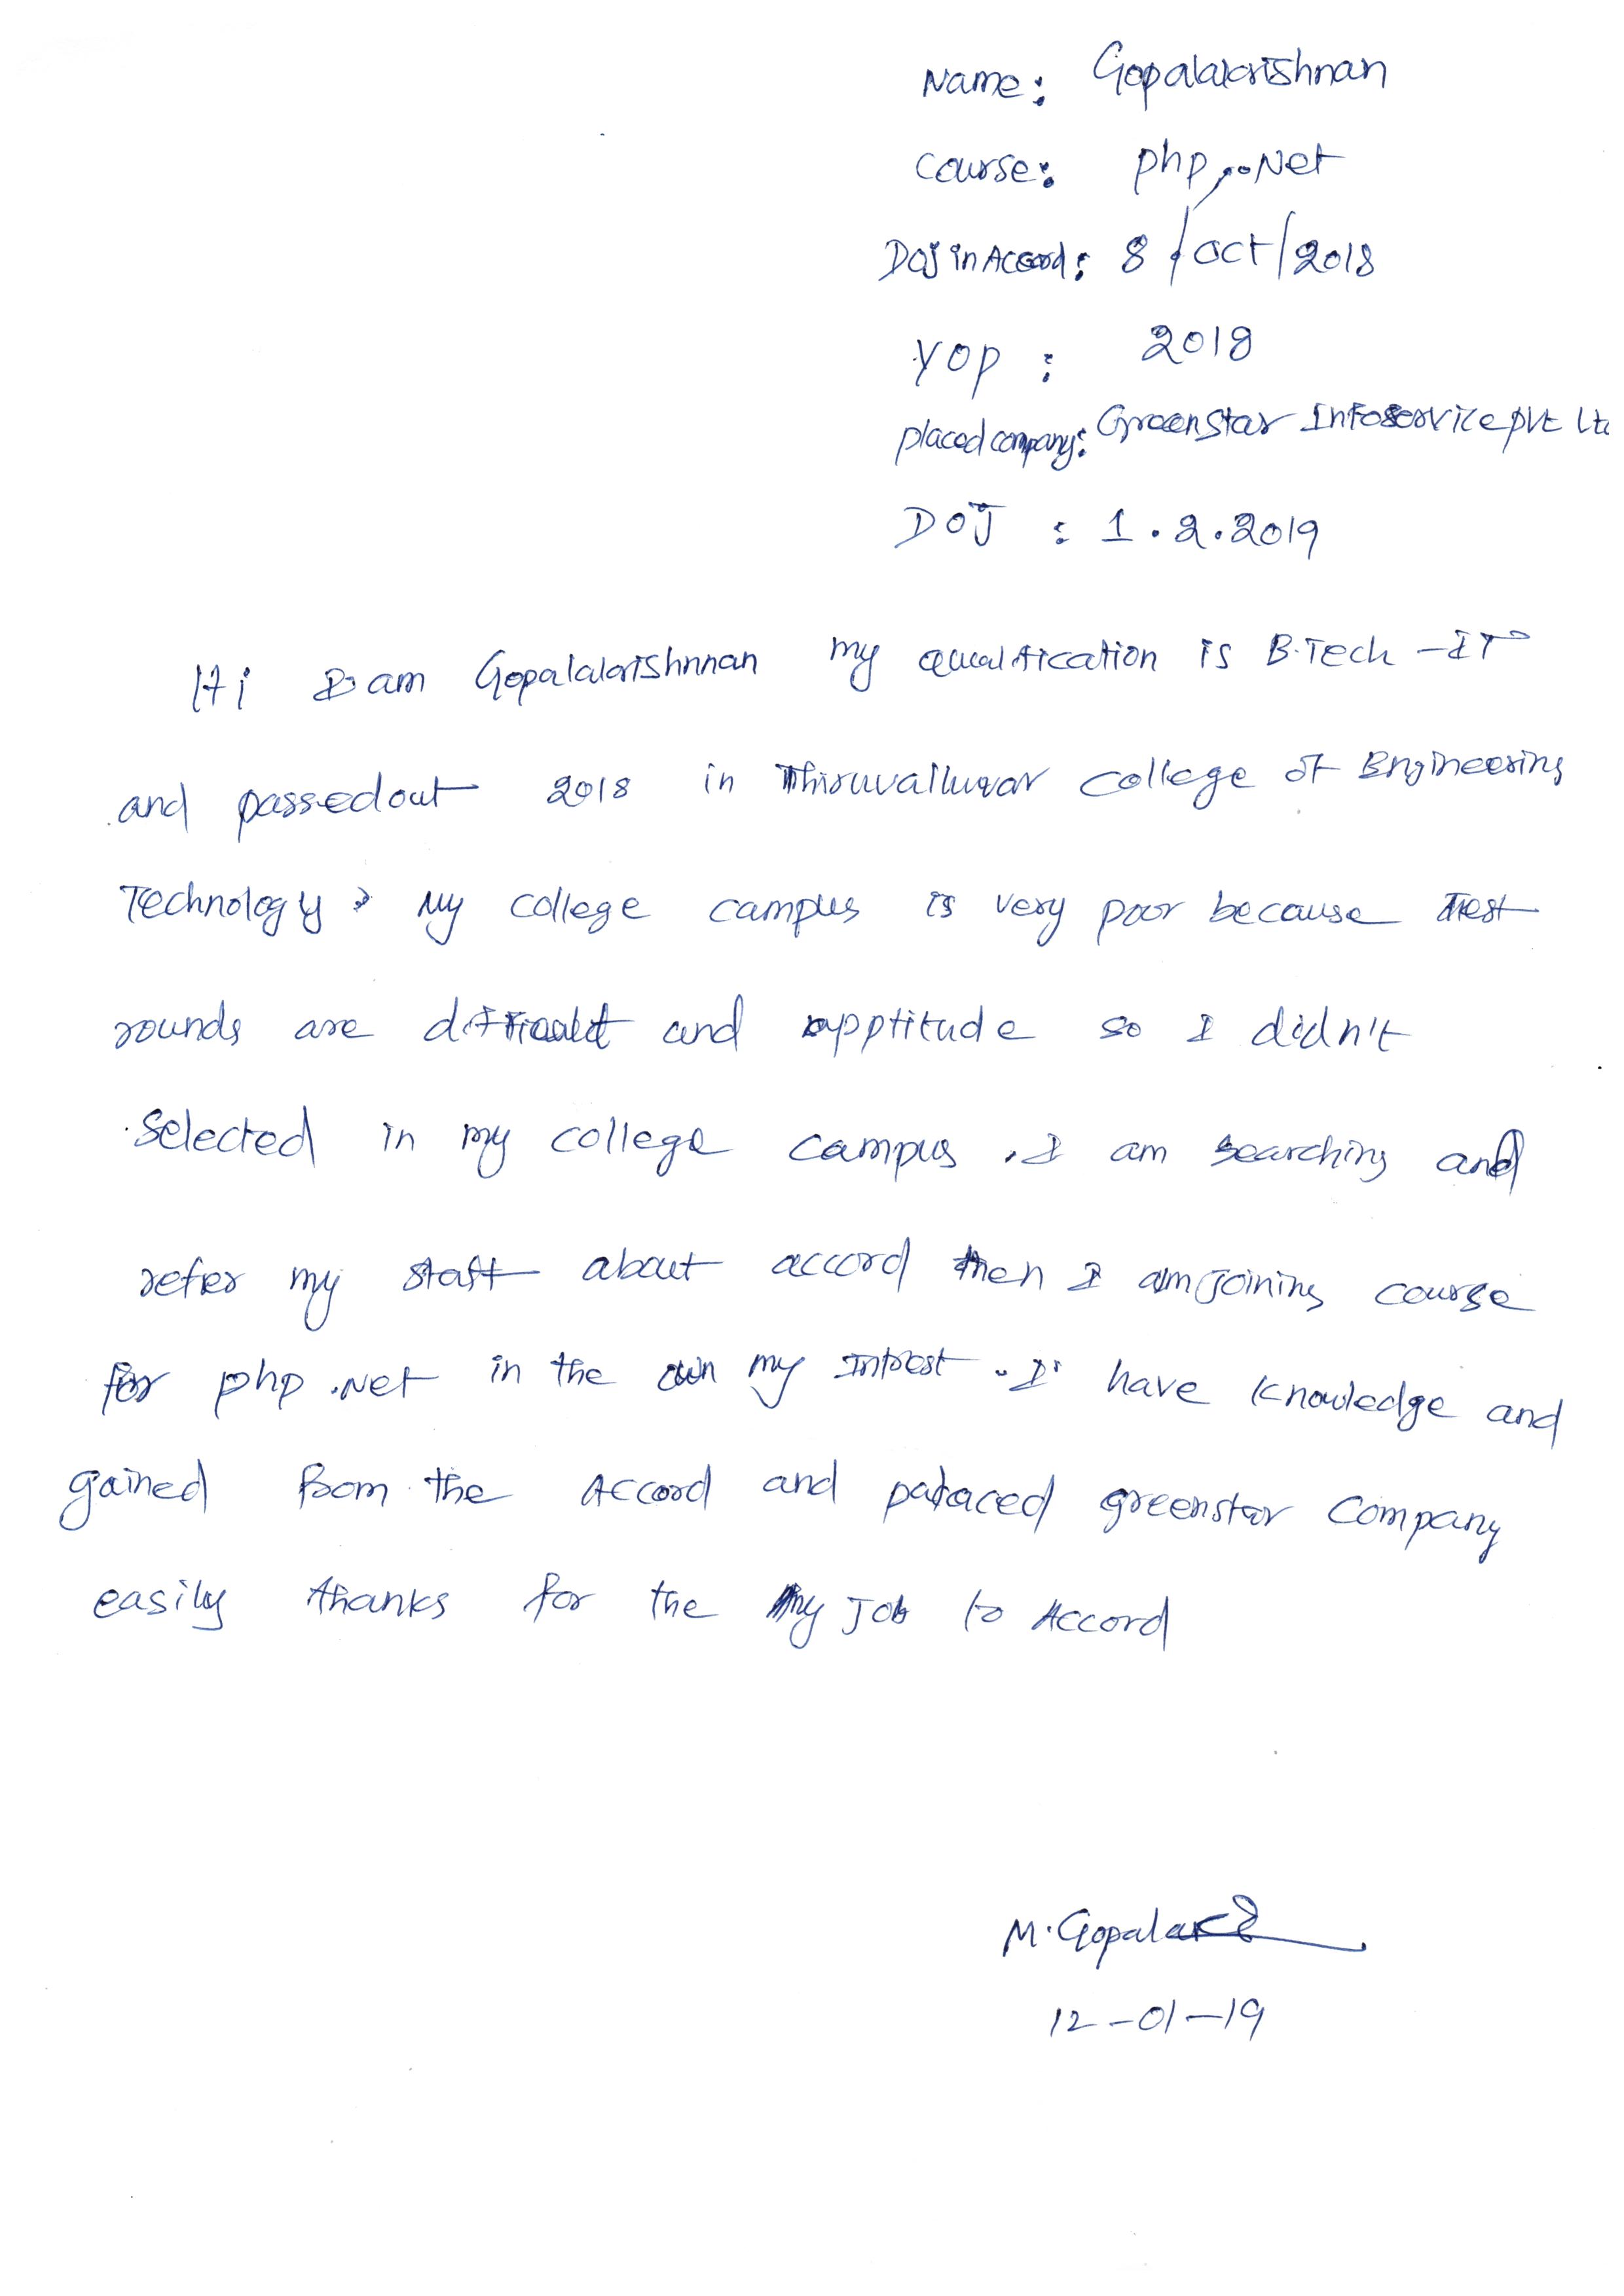 Name: Gopalakrishnan
Course: php, .Net
DOJ in Accord: 8/Oct/2018
YOP : 2018
placed company: Greenstar Infoservice pvt Ltd
DOJ : 1.2.2019
Hi I am Gopalakrishnnan my qualification is B.Tech -IT
and passedout 2018 in Thiruvalluvar College of Engineering
Technology. My college campus is very poor because Test
rounds are difficult and apptitude so I didn't
Selected in my college campus. I am searching and
refer my staff about accord then I am joining course
for php .Net in the own my Intrest. I have knowledge and
gained from the Accord and placed greenstar Company
easily thanks for the my Job to Accord
M. Gopalak
12-01-19